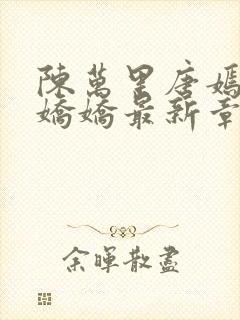 陳萬里唐嫣
嬌嬌最新章
余暉散盡